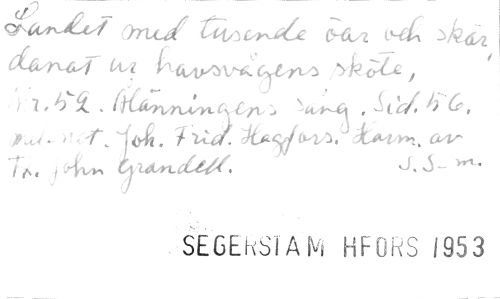 Landet med tusende öar och skär,
danat ur havsvågens sköte,
Nr. 52. Ålänningens sång. Sid. 56.
mel. not. Joh. Frid. Hagfors. Harm. av
Tr. John Grandell. S. S-m.
SEGERSTAM HFORS 1953